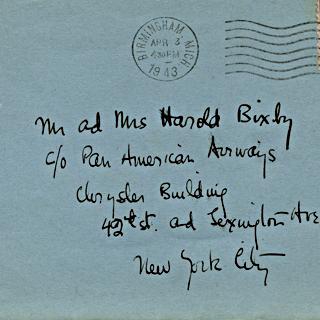 BIRMINGHAM, MICH.
APR 3
4 30 PM
1943
Mr ad Mrs Harold Bixby
c/o Pan American Airways
Chrysler Building
42nd st. ad Lexington Ave
New York City